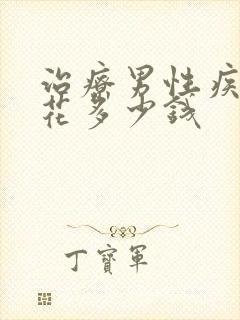 治療男性疾
花多少錢
丁寶軍